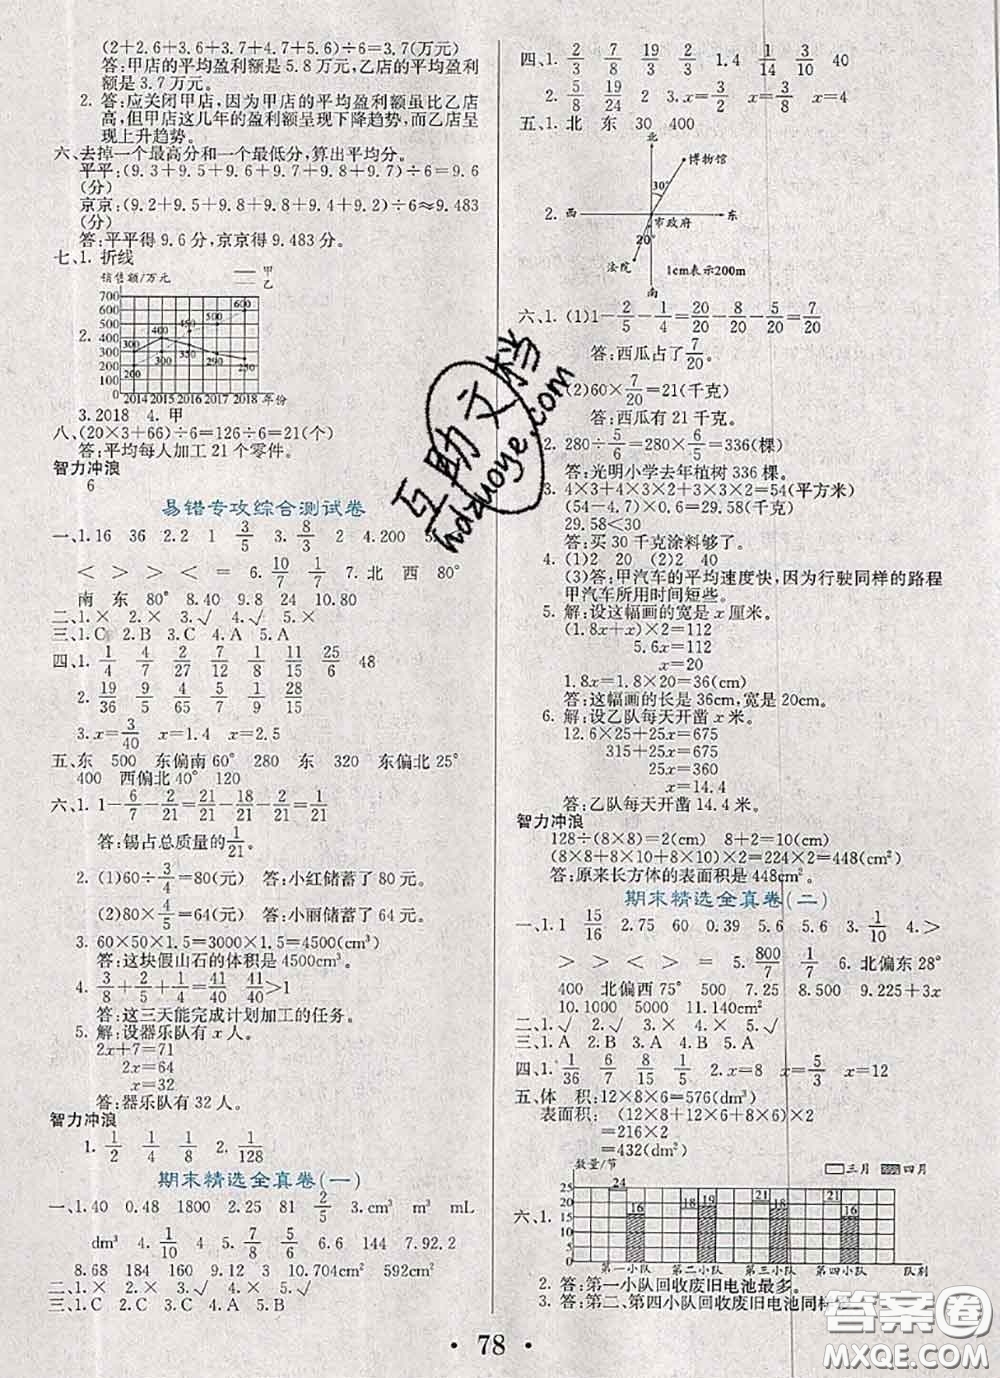 (2+2.6+3.6+3.7+4.7+5.6)÷6=3.7(万元)
答:甲店的平均盈利额是 5.8 万元,乙店的平均盈利
额是 3.7 万元。
2. 答:应关闭甲店,因为甲店的平均盈利额虽比乙店
高,但甲店这几年的盈利额呈现下降趋势,而乙店呈
现上升趋势。
六、去掉一个最高分和一个最低分,算出平均分。
平平:(9.3+9.5+9.6+9.7+9.8+9.7)÷6=9.6
(分)
京京:(9.2+9.5+9.8+9.8+9.4+9.2)÷6≈9.483
(分)
答:平平得 9.6 分,京京得 9.483 分。
七、1. 折线
销售额/万元 甲 乙
2.
700 600 500 400 300 200 100 0
300 400 450 500 600
200 300 350 290 250
2014 2015 2016 2017 2018 年份
3. 2018 4. 甲
八、(20×3+66)÷6=126÷6=21(个)
答:平均每人加工 21 个零件。
智力冲浪
6
易错专攻综合测试卷
一、1.16 36 2.2 1 3/5 3. 8/3 2 4.200
< > > < = 6. 10/7 1/7 7. 北 西 80°
南 东 80° 8.40 9.8 24 10.2
二、1.× 2.× 3.√ 4.√ 5.×
三、1.C 2.B 3.C 4.A 5.A
四、1. 1/4 4/7 27/7 1/8 11/15 25/6 48
2. 19/36 9/5 5/9 1/2 28/15
3. x=3/40 x=1.4 x=2.5
五、东 500 东偏南 60° 280 东 320 东偏北 25°
400 西偏北 40° 120
六、1. 1−6/7−2/21=21/21−18/21−2/21=1/21
答:锡占总质量的1/21。
2. (1)60÷3/4=80(元) 答:小红储蓄了 80 元。
(2)80×4/5=64(元) 答:小丽储蓄了 64 元。
3. 60×50×1.5=3000×1.5=4500(cm³)
答:这块假山石的体积是 4500cm³。
4. 3/8+2/5+1/4=41/40 41/40>1
答:这三天能完成计划加工的任务。
5. 解:设器乐队有 x 人。
2x+7=71
2x=64
x=32
答:器乐队有 32 人。
智力冲浪
1. 1/2 1/4 1/8 2. 1/128
期末精选全真卷(一)
一、1.40 0.48 1800 2.25 81 2/5 3.cm³ m³ mL
dm³ 4. 1/10 4 5. 7/8 5/6 6.6 144 7.92.2
8.68 184 160 9.12 3 10.704cm² 592cm²
二、1.× 2.× 3.√ 4.√ 5.×
三、1.C 2.A 3.C 4.B 5.C
四、1. 2/3 7/8 19/3 2/3 1.4 1/14 3/10 40
2. 5/8 19/24 2 3. x=3/2 x=3/8 x=4
五、1. 北 东 30 400
2.
北
博物馆
30°
西 东
市政府
20°
法院
1cm表示200m
南
六、1. (1)1−2/5−1/4=20/20−8/20−5/20=7/20
答:西瓜占了7/20。
(2)60×7/20=21(千克)
答:西瓜有 21 千克。
2. 280÷5/6=280×6/5=336(棵)
答:光明小学去年植树 336 棵。
3. 4×3+4×3×2+3×3×2=54(平方米)
(54−4.7)×0.6=29.58(千克)
29.58<30
答:买 30 千克涂料够了。
4. (1)2 20 (2)2 40
(3)答:甲汽车的平均速度快,因为行驶同样的路程
甲汽车所用时间短些。
5. 解:设这幅画的宽是 x 厘米。
(1.8x+x)×2=112
5.6x=112
x=20
1.8x=1.8×20=36(cm)
答:这幅画的长是 36cm,宽是 20cm。
6. 解:设乙队每天开凿 x 米。
12.6×25+25x=675
315+25x=675
25x=360
x=14.4
答:乙队每天开凿 14.4 米。
智力冲浪
128÷(8×8)=2(cm) 8+2=10(cm)
(8×8+8×10+8×10)×2=224×2=448(cm²)
答:原来长方体的表面积是 448cm²。
期末精选全真卷(二)
一、1.1 15/16 2.75 60 0.39 5.6 5.6 3. 1/10 4.>
> > < > 5. 800/7 1/7 6. 北偏东 28°
400 北偏西 75° 500 7.25 8.500 9.225+3x
10.1000 5000 11.140cm²
二、1.√ 2.√ 3.× 4.× 5.√
三、1.A 2.B 3.C 4.B 5.A
四、1. 1/36 6/7 8/15 1/5 2. x=8 x=5/3 x=12
五、体 积:12×8×6=576(dm³)
表面积:(12×8+12×6+8×6)×2
=216×2
=432(dm²)
六、1.
数量/节 三月 四月
25 20 15 10 5 0
24 16 18 19 21 16 21 16
第一小队 第二小队 第三小队 第四小队 队别
2. 答:第一小队回收废旧电池最多。
3. 答:第二、第四小队回收废旧电池同样
78
互助文档
hdzuoye.com
答案圈
MXQE.COM